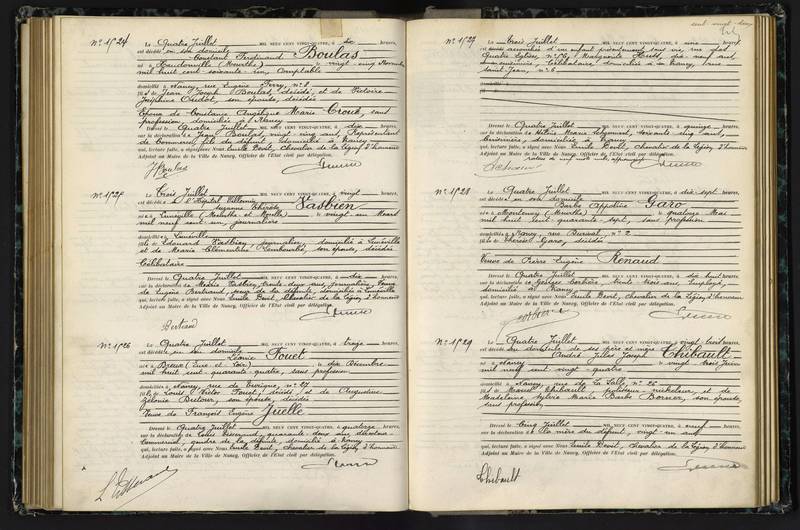 N° 1524 Le Quatre Juillet MIL NEUF CENT VINGT-QUATRE, à dix heures,
est décédé en son domicile
Constant Ferdinand Boulas
né à Haudonville (Meurthe) le vingt cinq
mil huit cent soixante cinq Comptable
domicilié à Nancy, rue Eugène Ferry, n° 8
fils de Jean Joseph Boulas, décédé, et de Victoire
Joséphine Oudot, son épouse, décédée
Epoux de Constance Angélique Marie Croux, sans
profession, domiciliée à Nancy
Dressé le Quatre Juillet MIL NEUF CENT VINGT-QUATRE, à dix heures,
sur la déclaration de Jean Boulas, vingt cinq ans, Représentant
de Commerce, fils du défunt, domicilié à Nancy
qui, lecture faite, a signé avec Nous Emile Devit, Chevalier de la Légion d'honneur
Adjoint au Maire de la Ville de Nancy, Officier de l'Etat civil par délégation.
J Boulas
N° 1525 Le Trois Juillet MIL NEUF CENT VINGT-QUATRE, à vingt heures,
est décédée à l'Hôpital Villemin
Suzanne Thérèse Vasbien
née à Lunéville (Meurthe et Moselle) le vingt un Mars
mil neuf cent un, journalière
domiciliée à Lunéville
fille de Edouard Vasbien, journalier, domicilié à Lunéville
et de Marie Clémentine son épouse, décédée
Célibataire
Dressé le Quatre Juillet MIL NEUF CENT VINGT-QUATRE, à dix heures,
sur la déclaration de Marie Vasbien, trente deux ans, journalière,
de Eugène Bertrand, soeur de la défunte, domiciliée à Lunéville
qui, lecture faite, a signé avec Nous Emile Devit, Chevalier de la Légion d'honneur
Adjoint au Maire de la Ville de Nancy, Officier de l'Etat civil par délégation.
N° 1526 Le Quatre Juillet MIL NEUF CENT VINGT-QUATRE, à treize heures,
est décédée en son domicile
Louise Fouet
née à (Eure et Loir) le dix Décembre
mil huit cent quarante quatre, sans profession
domiciliée à Nancy, rue de n° 27
fille de Louis Victor Fouet, décédé, et de Augustine
son épouse, décédée
Veuve de François Eugène Juelle
Dressé le Quatre Juillet MIL NEUF CENT VINGT-QUATRE, à quatorze heures,
sur la déclaration de Louis quarante deux ans,
Commercial, gendre de la défunte, domicilié à Nancy
qui, lecture faite, a signé avec Nous Emile Devit, Chevalier de la Légion d'honneur
Adjoint au Maire de la Ville de Nancy, Officier de l'Etat civil par délégation.
cent vingt deux
N° 1527 Le Trois Juillet MIL NEUF CENT VINGT-QUATRE, à une heure,
est accouchée d'un enfant présentement sans vie, rue des
Quatre Eglises, n° 56, Marguerite dix neuf ans
Célibataire, domiciliée à Nancy, rue
Saint Jean, n° 6
Dressé le Quatre Juillet MIL NEUF CENT VINGT-QUATRE, à quinze heures,
sur la déclaration de Hélène Marie soixante cinq ans,
domiciliée à Nancy
qui, lecture faite, a signé avec Nous Emile Devit, Chevalier de la Légion d'honneur
Adjoint au Maire de la Ville de Nancy, Officier de l'Etat civil par délégation.
N° 1528 Le Quatre Juillet MIL NEUF CENT VINGT-QUATRE, à dix sept heures,
est décédée en son domicile
Barbe Appoline Garo
née à Montenoy (Meurthe) le quatorze Mai
mil huit cent quarante sept, sans profession
domiciliée à Nancy, rue n° 2
fille de Thérèse Garo, décédée
Veuve de Pierre Eugène Renaud
Dressé le Quatre Juillet MIL NEUF CENT VINGT-QUATRE, à dix huit heures,
sur la déclaration de Georges trente trois ans, Employé,
domicilié à Nancy
qui, lecture faite, a signé avec Nous Emile Devit, Chevalier de la Légion d'honneur
Adjoint au Maire de la Ville de Nancy, Officier de l'Etat civil par délégation.
N° 1529 Le Quatre Juillet MIL NEUF CENT VINGT-QUATRE, à vingt trois heures,
est décédé au domicile de ses père et mère
André Jules Joseph Thibault
né à Nancy le vingt trois Juin
mil neuf cent vingt quatre
domicilié à Nancy, rue de la Salle, n° 26
fils de Marcel Thibault, polisseur nickeleur, et de
Madeleine Sylvie Marie Barbe Borner, son épouse,
sans profession
Dressé le Cinq Juillet MIL NEUF CENT VINGT-QUATRE, à neuf heures,
sur la déclaration de la mère du défunt, vingt un ans
qui, lecture faite, a signé avec Nous Emile Devit, Chevalier de la Légion d'honneur
Adjoint au Maire de la Ville de Nancy, Officier de l'Etat civil par délégation.
Thibault